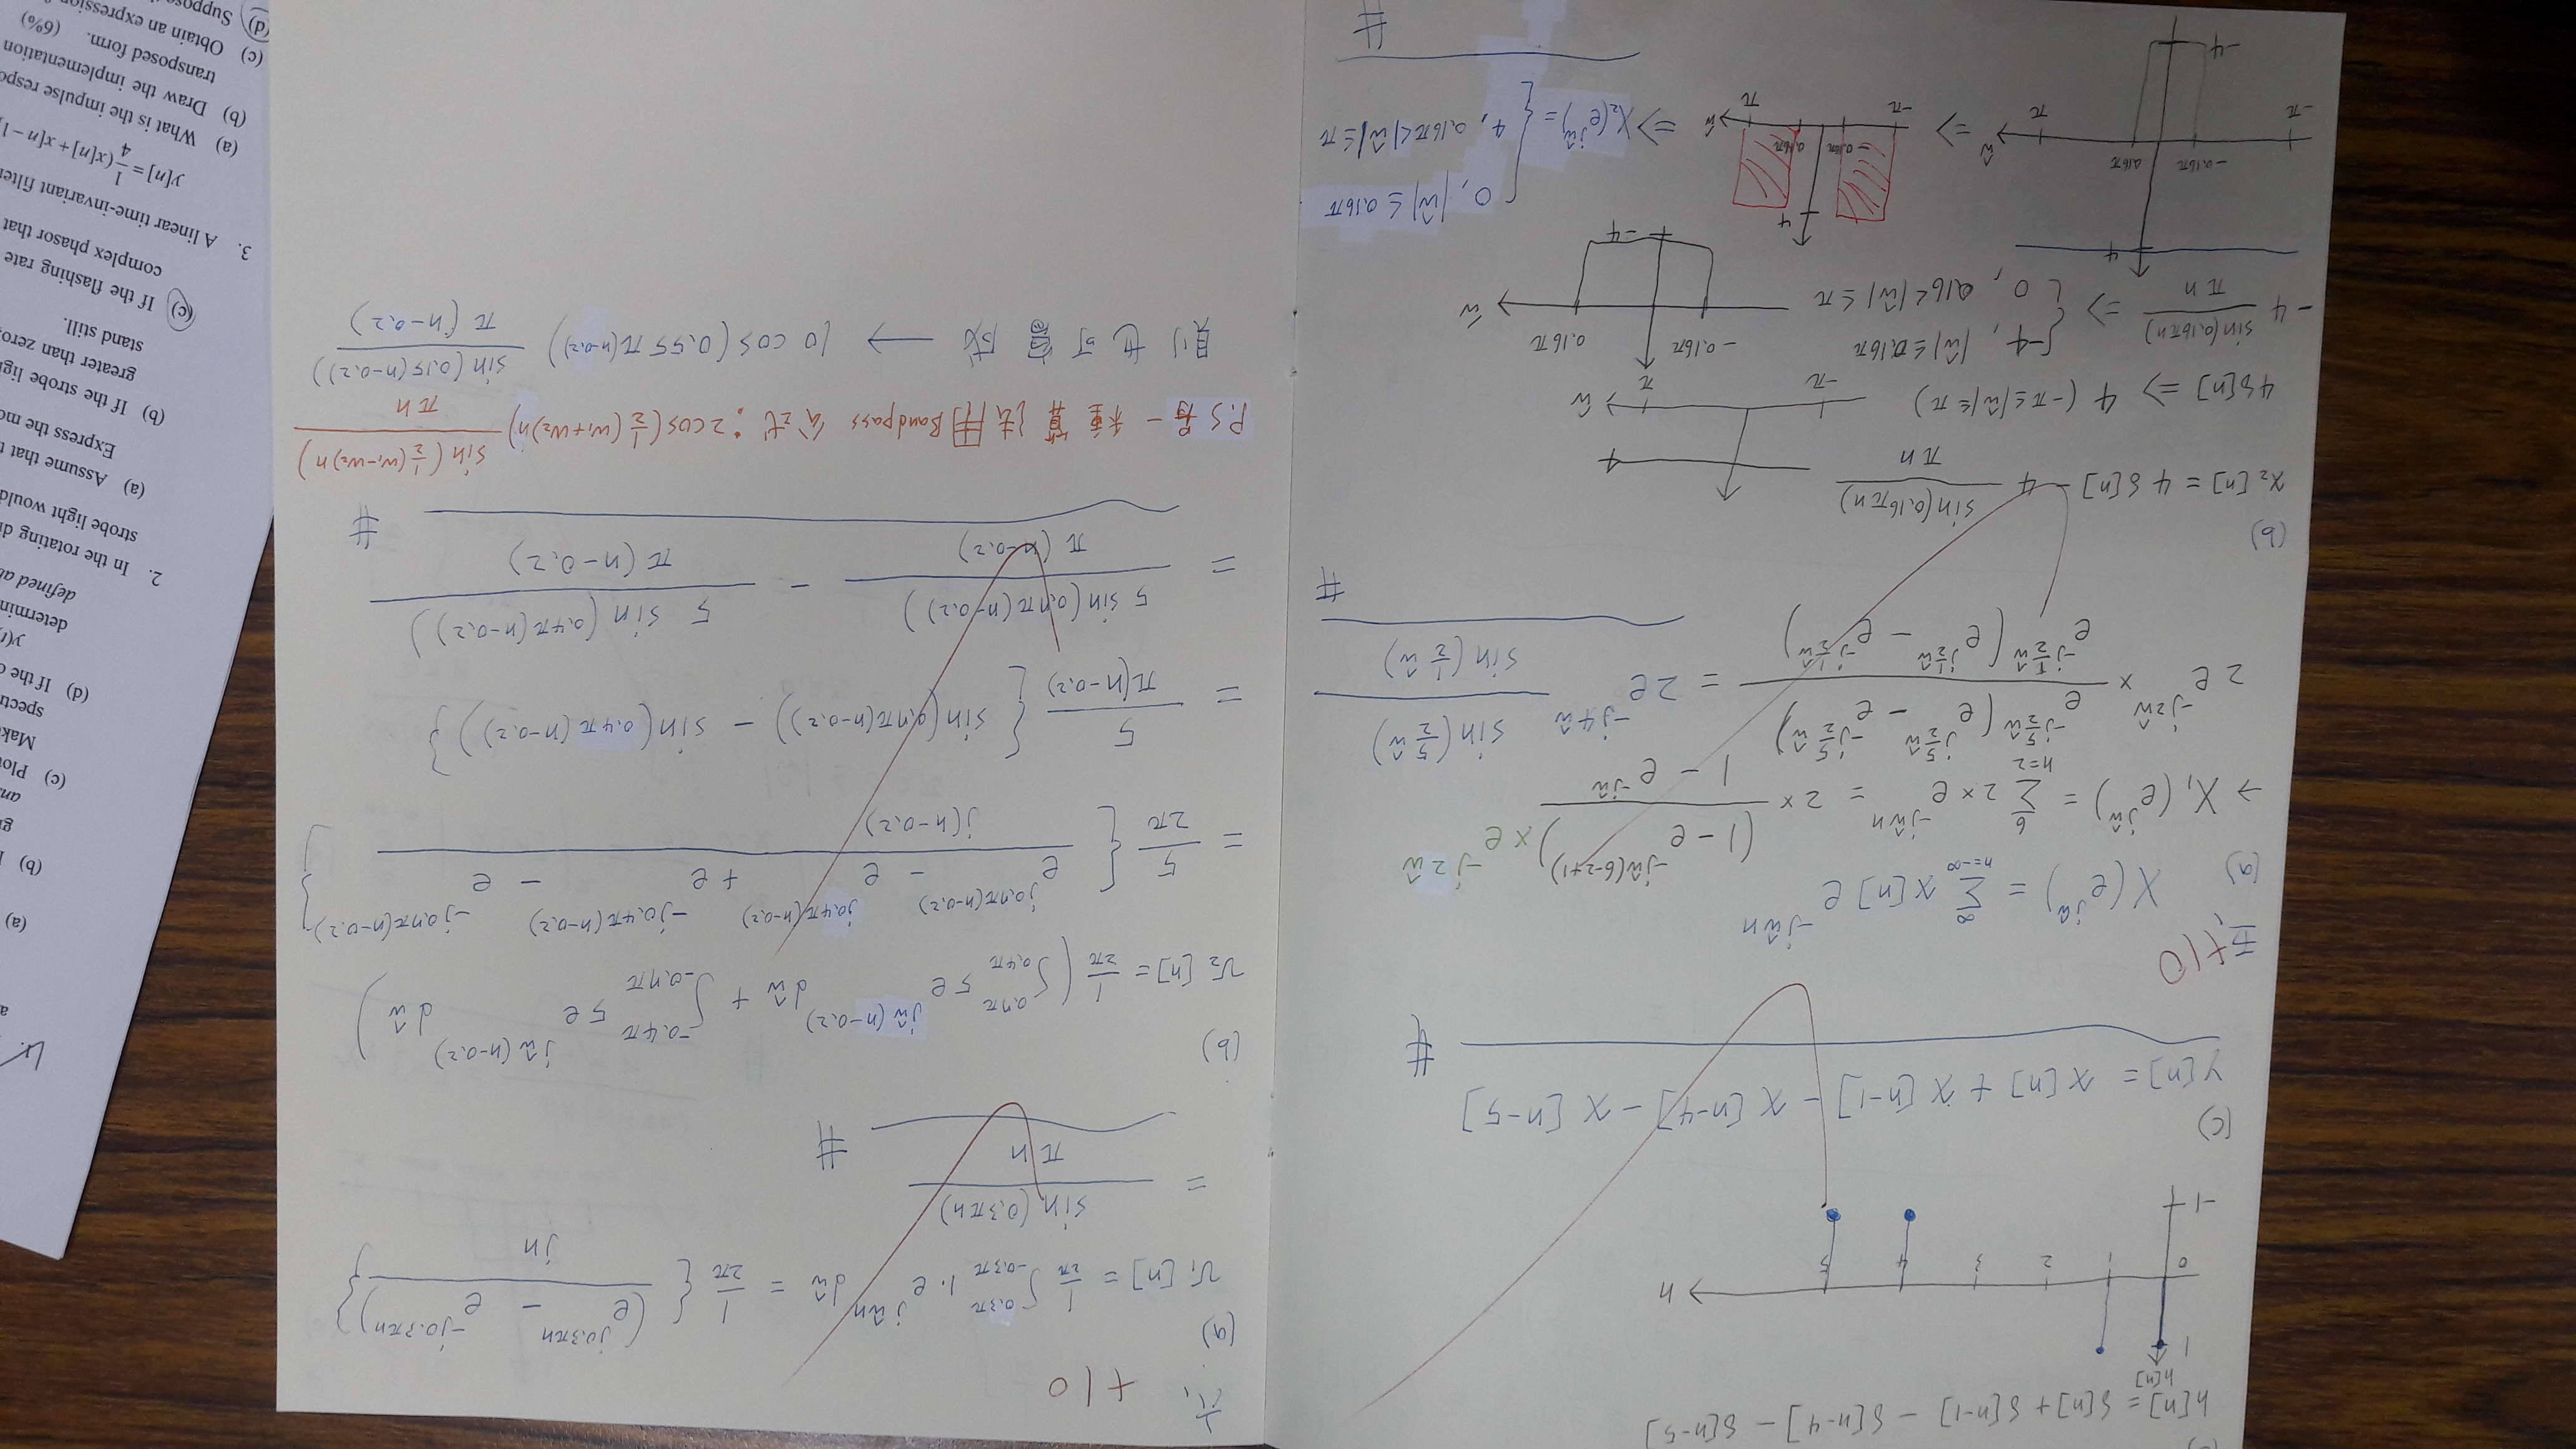 h[n] = δ[n] + δ[n-1] - δ[n-4] - δ[n-5]
h[n]
1
n
0 1 2 3 4 5
-1
(c)
y[n] = x[n] + x[n-1] - x[n-4] - x[n-5] #
五、 +10
(a) X(e^{jŵ}) = Σ_{n=-∞}^{∞} x[n] e^{-jŵn}
→ X₁(e^{jŵ}) = Σ_{n=2}^{6} 2 × e^{-jŵn} = 2 × (1 - e^{-jŵ(6-2+1)}) / (1 - e^{-jŵ}) × e^{-j2ŵ}
2e^{-j2ŵ} × e^{-j5/2ŵ}(e^{j5/2ŵ} - e^{-j5/2ŵ}) / e^{-j1/2ŵ}(e^{j1/2ŵ} - e^{-j1/2ŵ}) = 2e^{-j4ŵ} sin(5/2 ŵ) / sin(1/2 ŵ) #
(b)
x₂[n] = 4δ[n] - 4 sin(0.16πn) / πn
4
4δ[n] => 4 (-π≤|ŵ|≤π)
-π π ŵ
-4 sin(0.16πn) / πn => { -4, |ŵ|≤0.16π
0, 0.16<|ŵ|≤π
-0.16π 0.16π ŵ
-4
4
-π -0.16π 0.16π π ŵ
-4
=>
4
-π -0.16π 0.16π π ŵ
=> X₂(e^{jŵ}) = { 0, |ŵ| ≤ 0.16π
4, 0.16π<|ŵ|≤π
#
六、 +10
(a)
v₁[n] = 1/2π ∫_{-0.3π}^{0.3π} 1·e^{jŵn} dŵ = 1/2π { (e^{j0.3πn} - e^{-j0.3πn}) / jn }
= sin(0.3πn) / πn #
(b)
v₂[n] = 1/2π ( ∫_{0.4π}^{0.7π} 5e^{jŵ(n-0.2)} dŵ + ∫_{-0.7π}^{-0.4π} 5e^{jŵ(n-0.2)} dŵ )
= 5/2π { e^{j0.7π(n-0.2)} - e^{j0.4π(n-0.2)} + e^{-j0.4π(n-0.2)} - e^{-j0.7π(n-0.2)} / j(n-0.2) }
= 5 / π(n-0.2) { sin(0.7π(n-0.2)) - sin(0.4π(n-0.2)) }
= 5 sin(0.7π(n-0.2)) / π(n-0.2) - 5 sin(0.4π(n-0.2)) / π(n-0.2) #
P.S 另一種算法用Bandpass 公式：2cos(½(w₁+w₂)n) sin(½(w₁-w₂)n) / πn
則也可寫成 → 10 cos(0.55π(n-0.2)) sin(0.15(n-0.2)) / π(n-0.2)
(a)
(b)
(c) Plo
Mak
spect
(d) If the
y(t
determin
defined a
2. In the rotating di
strobe light would
(a) Assume that t
Express the mo
(b) If the strobe lig
greater than zero,
stand still.
(c) If the flashing rate
complex phasor that
3. A linear time-invariant filter
y[n] = 1/4 (x[n] + x[n-1]
(a) What is the impulse respo
(b) Draw the implementation
transposed form. (6%)
(c) Obtain an expression
(d) Suppose